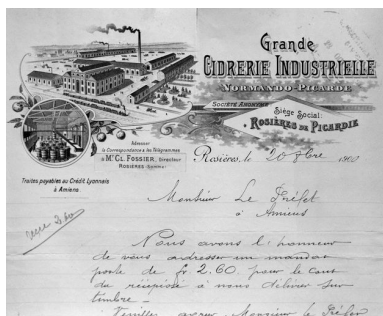 Grande
CIDRERIE INDUSTRIELLE
NORMANDO PICARDE
SOCIÉTÉ ANONYME
Siège Social:
ROSIÈRES DE PICARDIE
Adresser
la Correspondance & les Télégrammes
à Mr. CL. FOSSIER, Directeur
ROSIÈRES (Somme)
Traites payables au Crédit Lyonnais
à Amiens.
Rosières, le 20 8bre 1900
Monsieur Le Préfet
à Amiens
Nous avons l'honneur
de vous adresser un mandat
poste de fr 2.60 pour le cout
du récépissé à nous délivrer sur
timbre –
Veuillez agréer Monsieur le Préfet